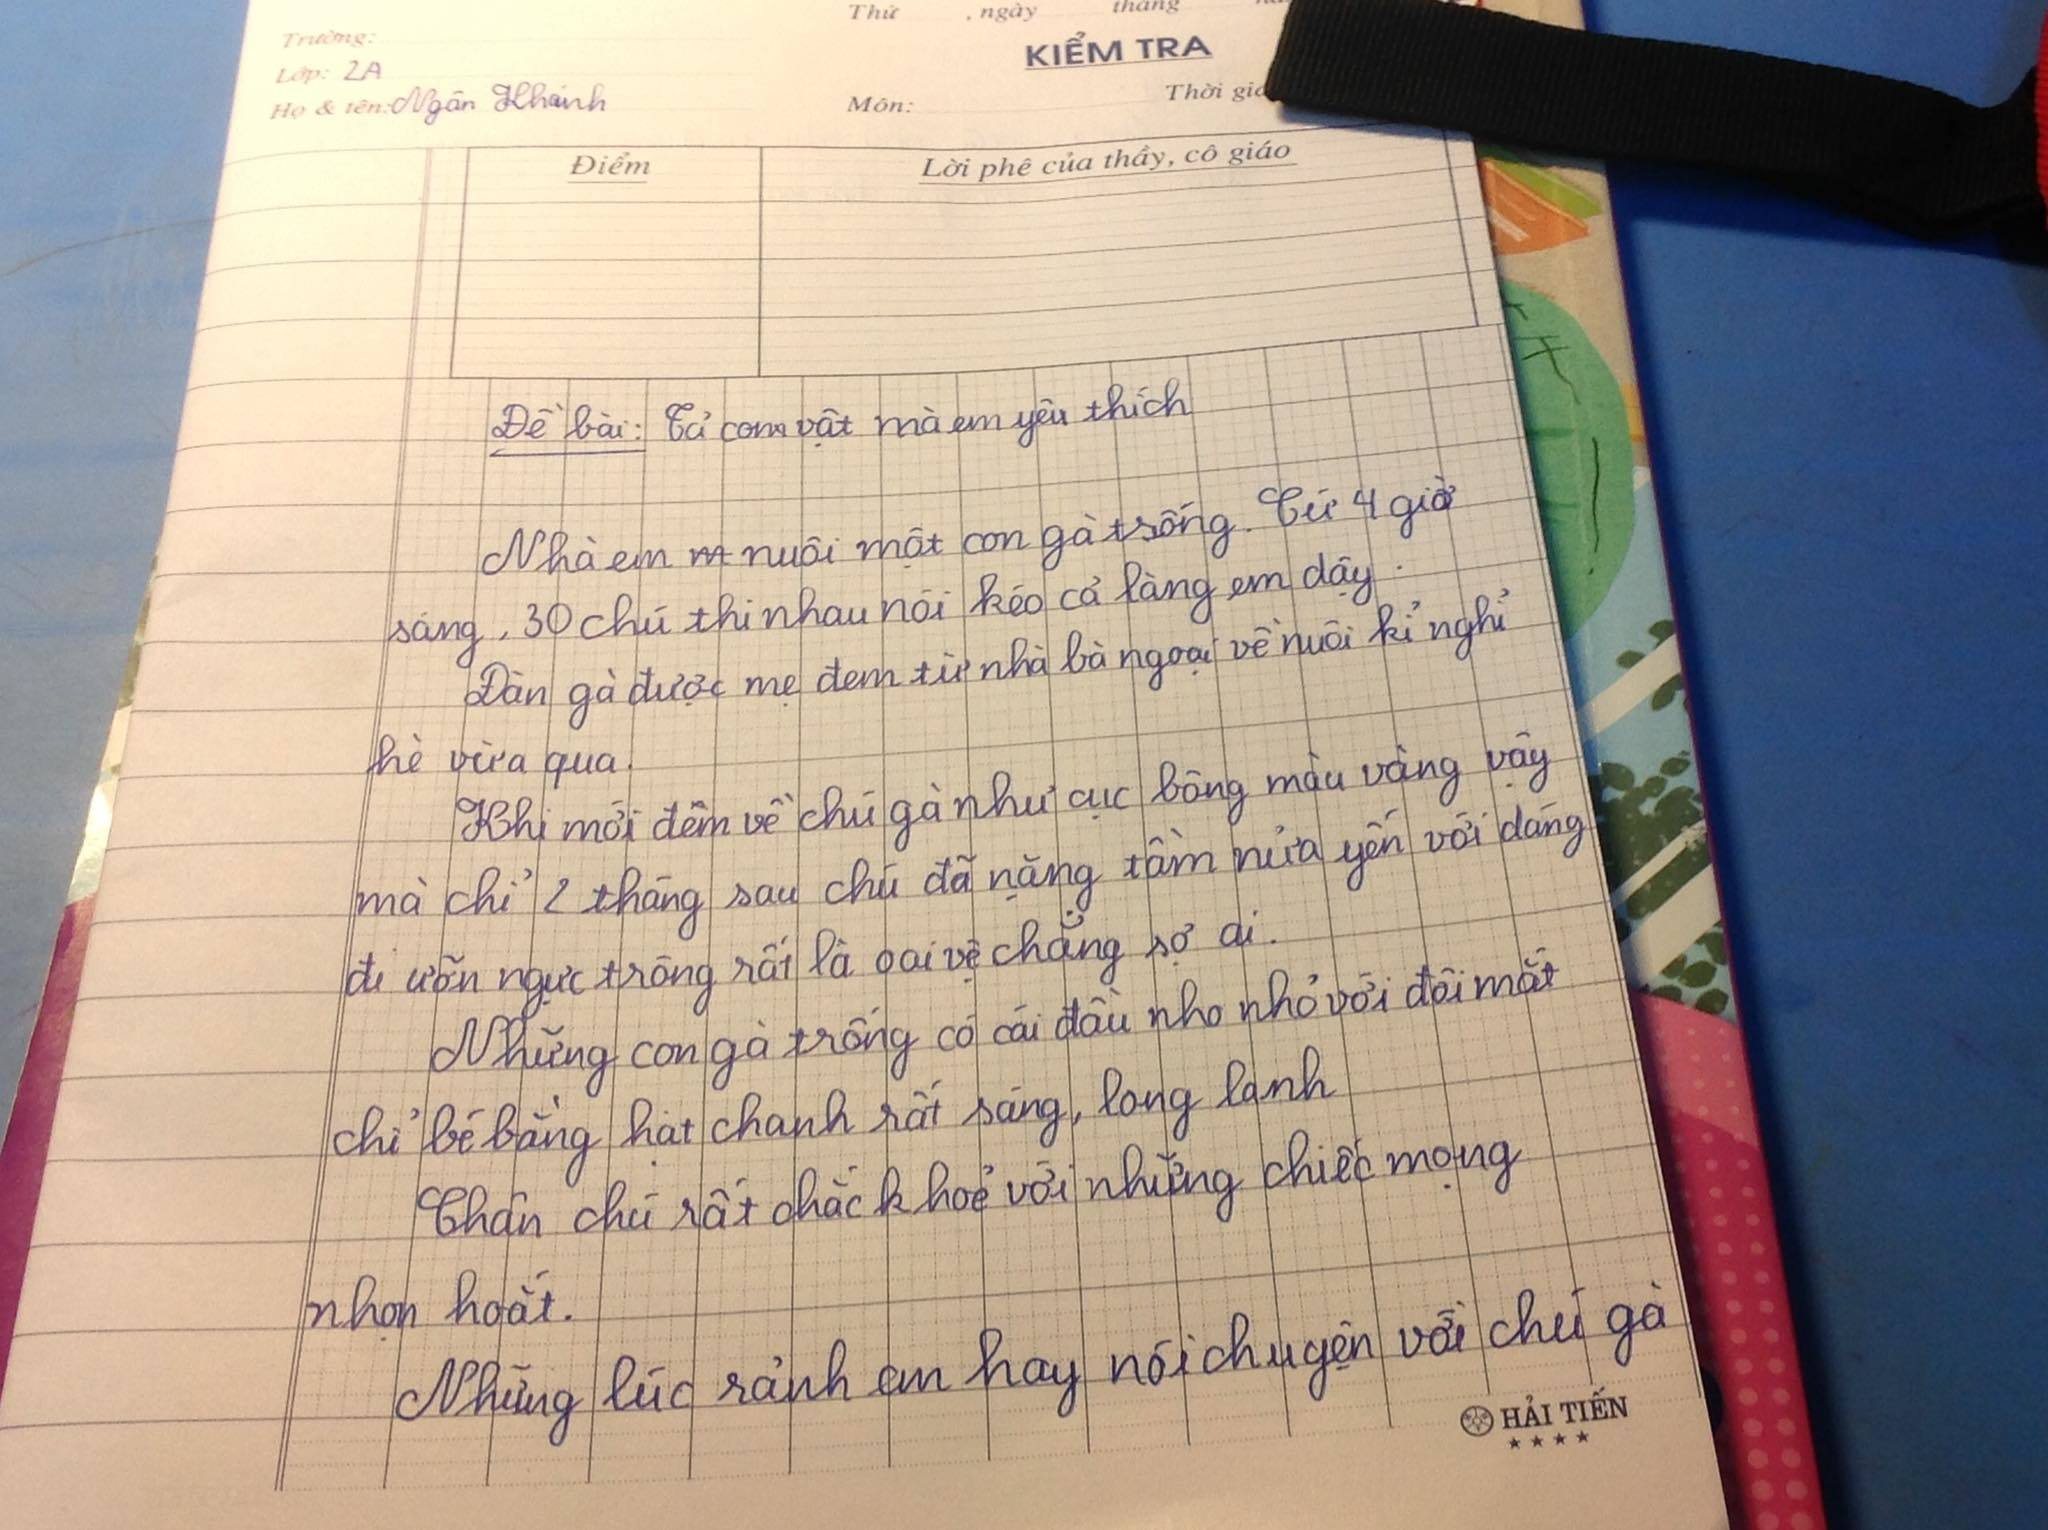 Thứ , ngày tháng
Trường:
KIỂM TRA
Lớp: 2A
Họ & tên: Ngân Khánh
Môn:
Thời
Điểm
Lời phê của thầy, cô giáo
Đề bài: Tả con vật mà em yêu thích
Nhà em nuôi một con gà trống. Cứ 4 giờ
sáng, 30 chú thi nhau nói kéo cả làng em dậy.
Đàn gà được mẹ đem từ nhà bà ngoại về nuôi kỉ nghỉ
hè vừa qua.
Khi mới đêm về chú gà như cục bông màu vàng vậy
mà chỉ 2 tháng sau chú đã nặng tầm nửa yến với dáng
đi ưỡn ngực trông rất là oai vệ chẳng sợ ai.
Những con gà trống có cái đầu nho nhỏ với đôi mắt
chỉ bé bằng hạt chanh rất sáng, long lanh
Chân chú rất chắc khoẻ với những chiếc móng
nhọn hoắt.
Những lúc rảnh em hay nói chuyện với chú gà
HẢI TIẾN